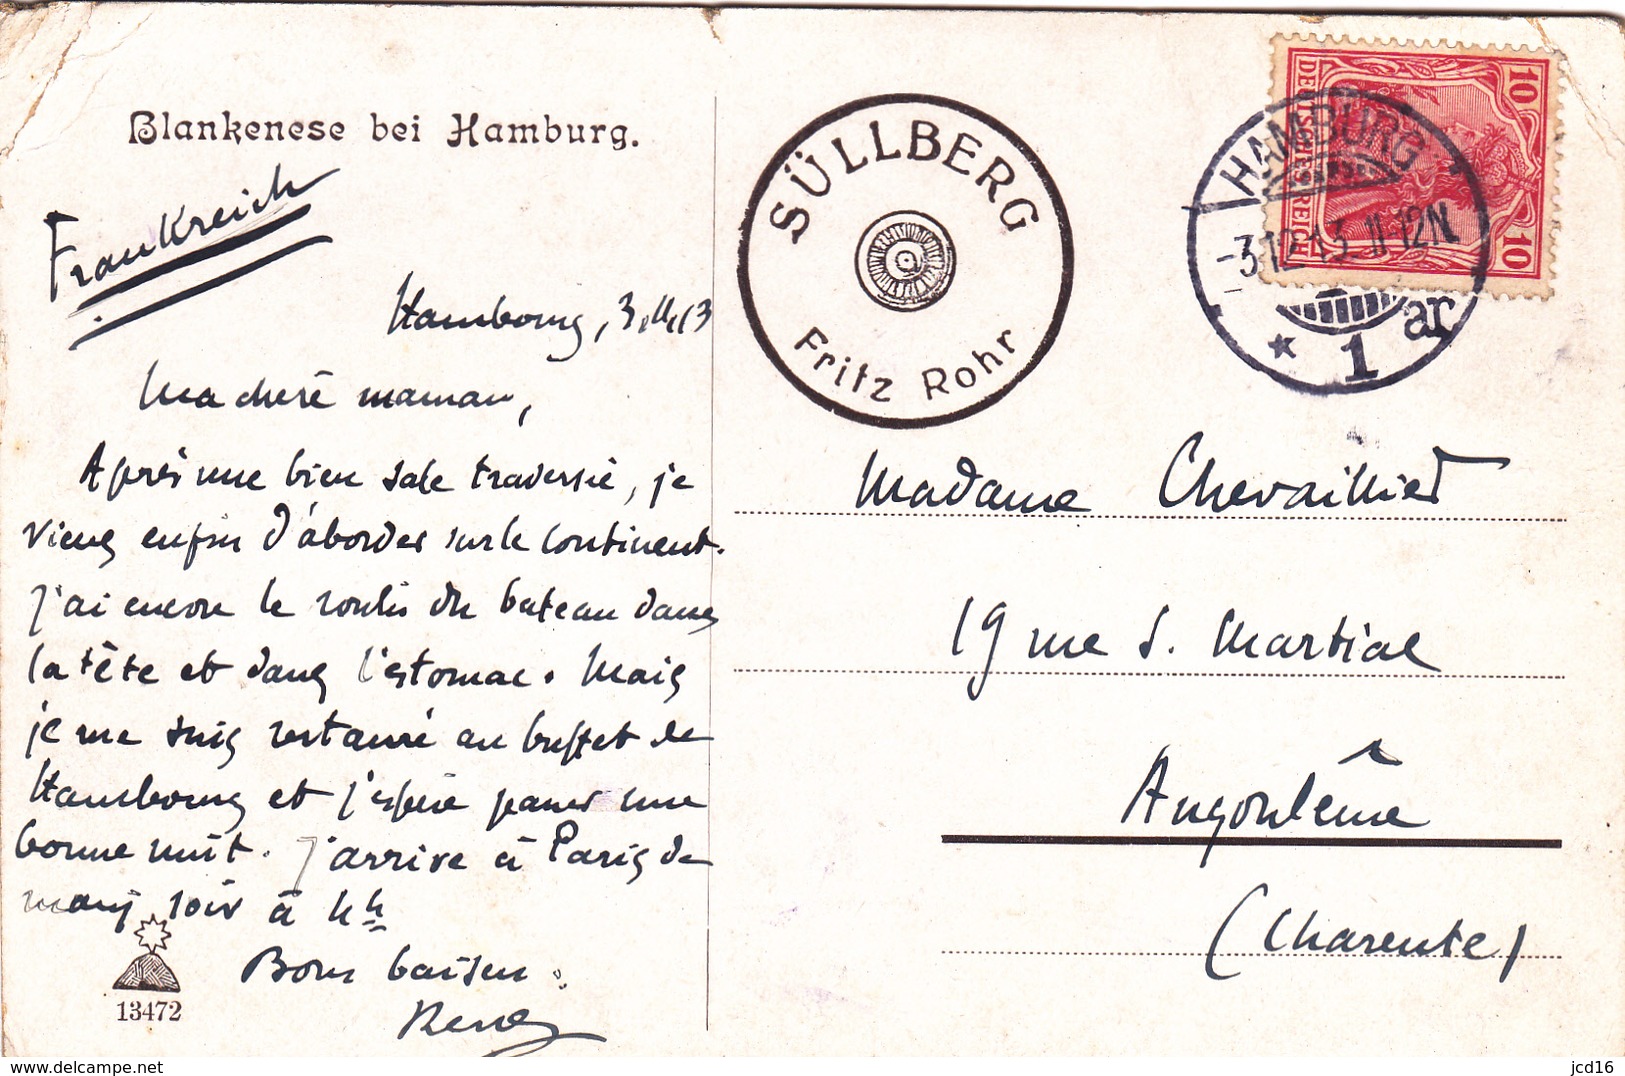 Blankenese bei Hamburg.
Frankreich
Hambourg, 3.
Ma chère maman,
Après une bien sale traversée, je
viens enfin d'aborder sur le continent.
J'ai encore le roulis du bateau dans
la tête et dans l'estomac. Mais
je me suis restauré au buffet de
Hambourg et j'espère passer une
bonne nuit. J'arrive à Paris de
main soir à 4h
Bons baisers.
René
13472
SÜLLBERG
Fritz Rohr
HAMBURG
-3.12.13. 11-12N
* 1 ar
10 10
DEUTSCHES REICH
Madame Chevaillier
19 rue S. Martial
Angoulême
(Charente)
jcd16